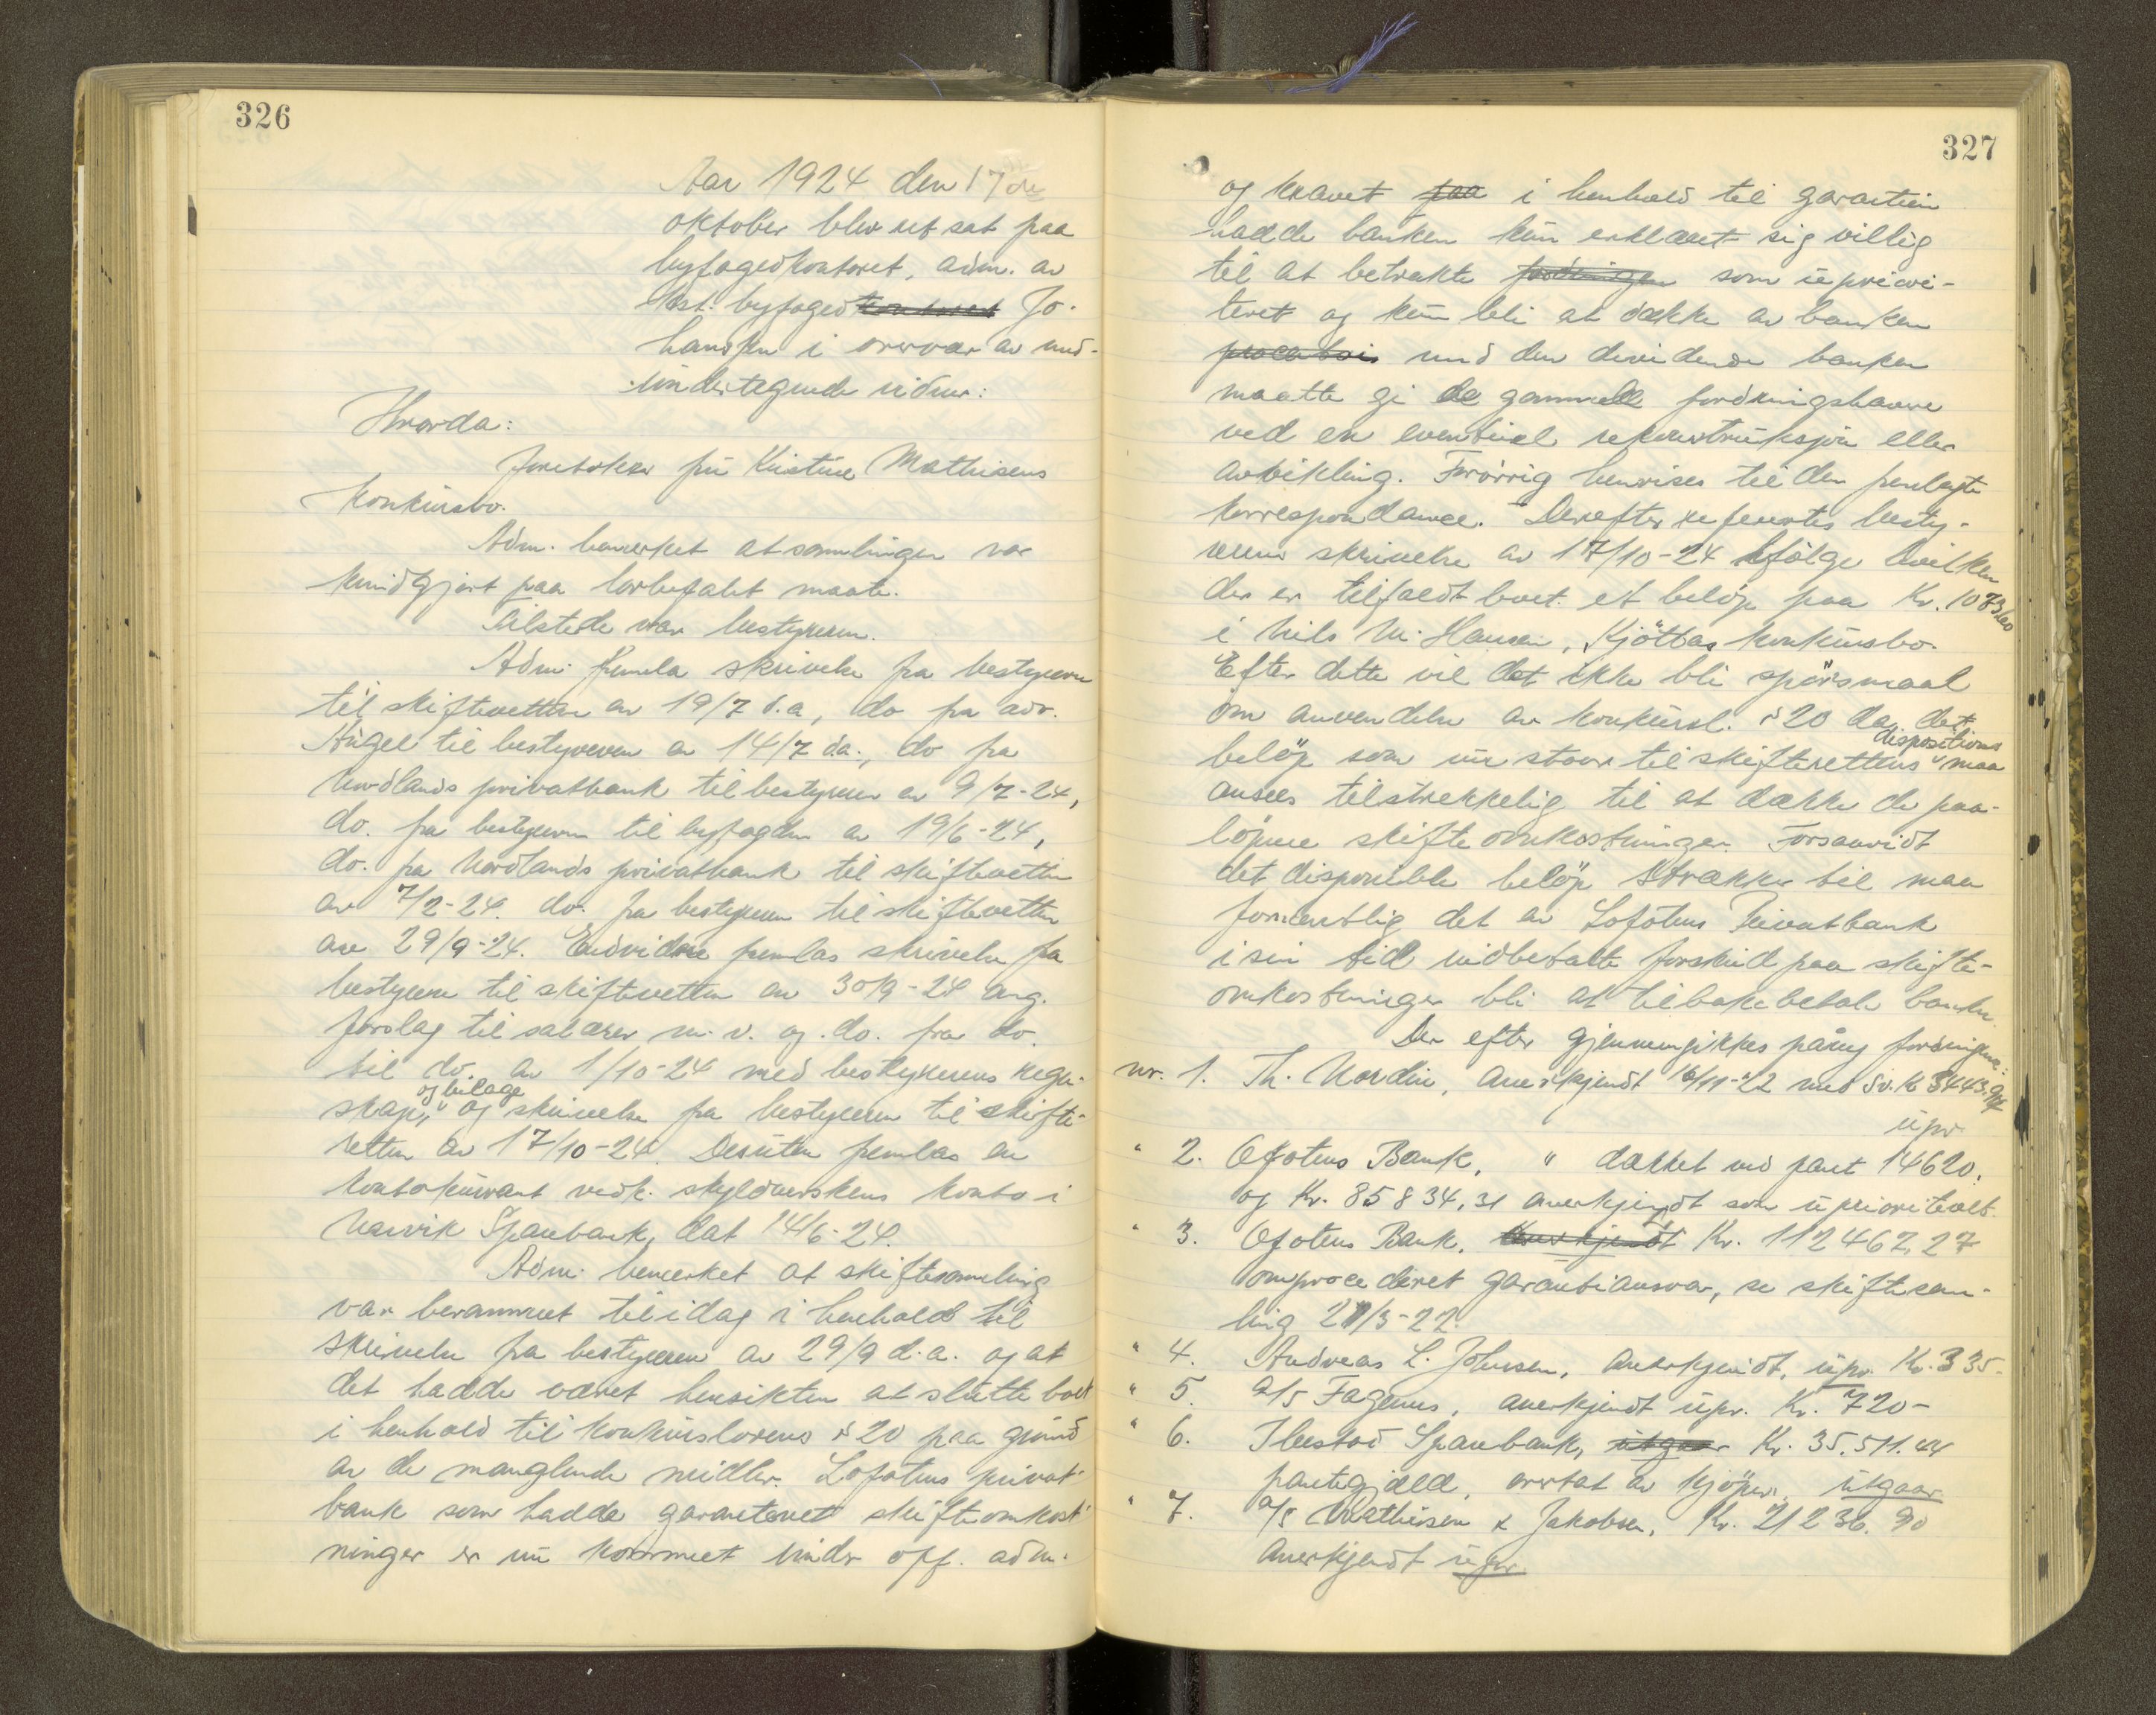 326
Aar 1924 den 17de
oktober blev ret sat paa
byfogedkontoret, adm. av
kst. byfoged kontoret Jo-
hansen i overvær av med-
undertegnede vidner:
Hvorda:
foretokes fru Kristine Mathisens
konkursbo.
Adm. bemerket at samlingen var
kundgjort paa lovbefalet maate.
Tilstede var bestyreren.
Adm. fremla skrivelse fra bestyreren
til skifteretten av 19/7 d.a, do fra adv.
Angel til bestyreren av 14/7 d.a., do fra
Nordlands privatbank til bestyreren av 9/7-24,
do. fra bestyreren til byfogden av 19/6-24,
do. fra Nordlands privatbank til skifteretten
av 7/2-24. do. fra bestyreren til skifteretten
av 29/9-24. Endvidere fremlas skrivelse fra
bestyreren til skifteretten av 30/9-24 ang.
forslag til salærer m. v. og do. fra do.
til do. av 1/10-24 med bestyrerens regn-
skap, og bilage og skrivelse fra bestyreren til skifte-
retten av 17/10-24. Desuten fremlas en
kontokurant vedk. skyldnerskens konto i
Narvik Sparebank, dat 14/6-24.
Adm. bemerket at skiftesamling
var berammet til idag i henhold til
skrivelse fra bestyreren av 29/9 d.a. og at
det hadde været hensikten at slutte boet
i henhold til konkurslovens § 20 paa grund
av de manglende midler. Lofotens privat-
bank som hadde garanteret skifteomkost-
ninger er nu kommet under off. adm.
327
og kravet paa i henhold til garantien
hadde banken kun erklæret sig villig
til at betrakte fordringen som uprivi-
teret og kun bli at dække av banken
procentvis med den dividende banken
maatte gi de gamle fordringshavere
ved en eventuel rekonstruksjon eller
avvikling. Forövrig henvises til den fremlagte
korrespondance. Derefter refereertes besty-
rerens skrivelse av 17/10-24 ifölge hvilken
der er tilfaldt boet et belöp paa Kr. 1073.60
i Nils N. Hansen, Kjöttas konkursbo.
Efter dette vil det ikke bli spörsmaal
om anvendelse av konkursl. § 20 da det
belöp som nu staar til skifterettens dispositions maa
ansees tilstrekkelig til at dække de paa-
löpne skifteomkostninger. Forsaavidt
det disponible belöp strækker til maa
formentlig det av Lofotens Privatbank
i sin tid indbetalte forskud paa skifte-
omkostninger bli at tilbakebetale banken.
Der efter gjennemgikkes påny fordringene:
nr. 1. Th. Nordin, anerkjendt 16/11-22 med Sv. K 3443.94
upr.
" 2. Ofotens Bank, " dækket ved pant 14620.
og Kr. 85834,31 anerkjendt som uprioritert.
" 3. Ofotens Bank, anerkjendt Kr. 112467,27
omproce deret garantiansvar, se skiftesam-
ling 21/3-22.
" 4. Andreas L. Johnsen, anerkjendt, upr. Kr. 335.
" 5. A/S Fagernes, anerkjendt upr. Kr. 720-
" 6. Ibestad Sparebank, utgaar Kr. 35.511.44
pantegjæld, overtat av kjöper, utgaar
" 7. A/S Mathisen & Jakobsen, Kr. 21236.90
anerkjendt upr.